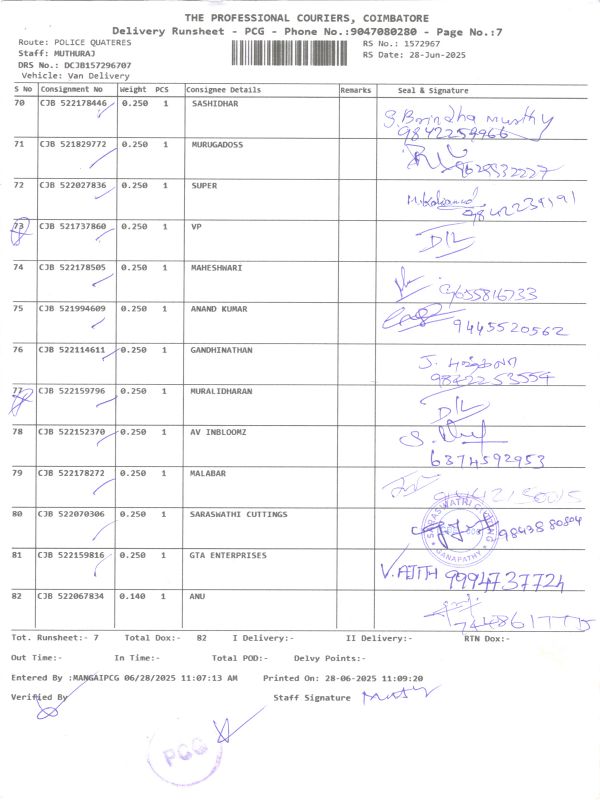 THE PROFESSIONAL COURIERS, COIMBATORE
Delivery Runsheet - PCG - Phone No.:9047080280 - Page No.:7
Route: POLICE QUATERES RS No.: 1572967
Staff: MUTHURAJ RS Date: 28-Jun-2025
DRS No.: DCJB157296707
Vehicle: Van Delivery
S No Consignment No Weight PCS Consignee Details Remarks Seal & Signature
70 CJB 522178446 0.250 1 SASHIDHAR
9842254966
71 CJB 521829772 0.250 1 MURUGADOSS
9629532227
72 CJB 522027836 0.250 1 SUPER
9842231191
73 CJB 521737860 0.250 1 VP D/L
74 CJB 522178505 0.250 1 MAHESHWARI
9655816733
75 CJB 521994609 0.250 1 ANAND KUMAR
9445520562
76 CJB 522114611 0.250 1 GANDHINATHAN
9842253554
77 CJB 522159796 0.250 1 MURALIDHARAN D/L
78 CJB 522152370 0.250 1 AV INBLOOMZ
6374592953
79 CJB 522178272 0.250 1 MALABAR
80 CJB 522070306 0.250 1 SARASWATHI CUTTINGS
9843880804
81 CJB 522159816 0.250 1 GTA ENTERPRISES
V. AJITH 9994737724
82 CJB 522067834 0.140 1 ANU
Tot. Runsheet:- 7 Total Dox:- 82 I Delivery:- II Delivery:- RTN Dox:-
Out Time:- In Time:- Total POD:- Delvy Points:-
Entered By :MANGAIPCG 06/28/2025 11:07:13 AM Printed On: 28-06-2025 11:09:20
Verified By Staff Signature
PCG